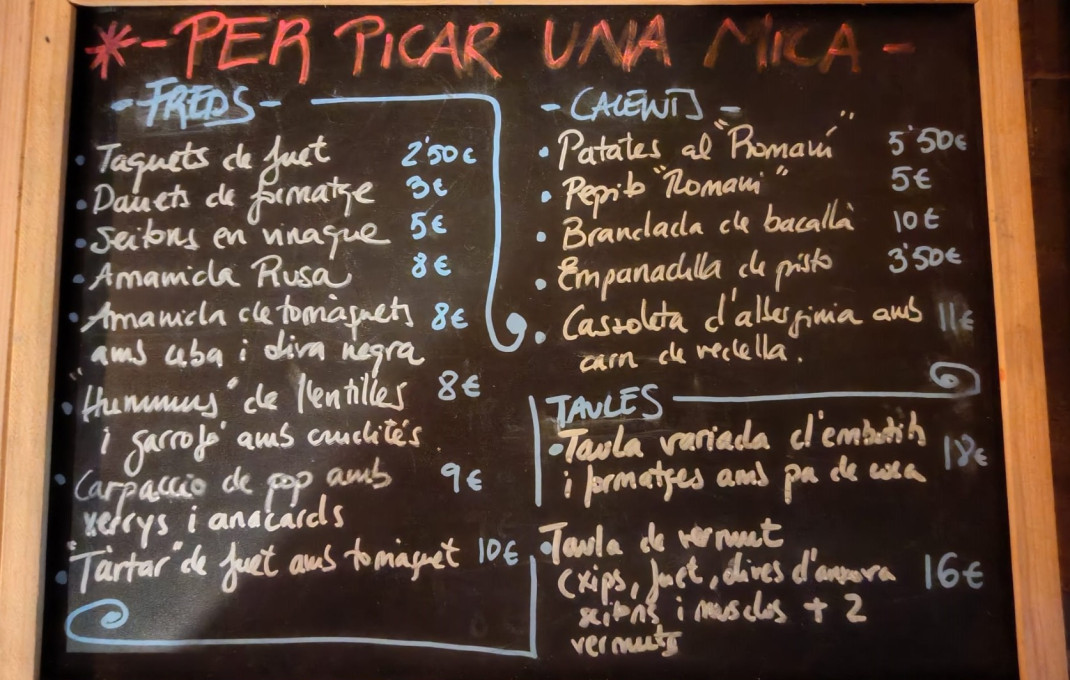 * - PER PICAR UNA MICA -
- FREDS -
• Taquets de fuet 2'50€
• Dauets de formatge 3€
• Seitons en vinagre 5€
• Amanida Rusa 8€
• Amanida de tomàquets 8€
amb ceba i oliva negra
• "Hummus" de llentilles 8€
i garrofó amb crudités
• Carpaccio de pop amb 9€
xerrys i anacards
• "Tàrtar" de fuet amb tomàquet 10€
- CALENTS -
• Patates al "Romaní" 5'50€
• Pepito "Romaní" 5€
• Brandada de bacallà 10€
• Empanadilla de pisto 3'50€
• Cassoleta d'albergínia amb 11€
carn de vedella.
TAULES
• Taula variada d'embotits 18€
i formatges amb pa de coca
• Taula de vermut
(xips, fuet, olives d'anxova 16€
seitons i musclos + 2
vermuts